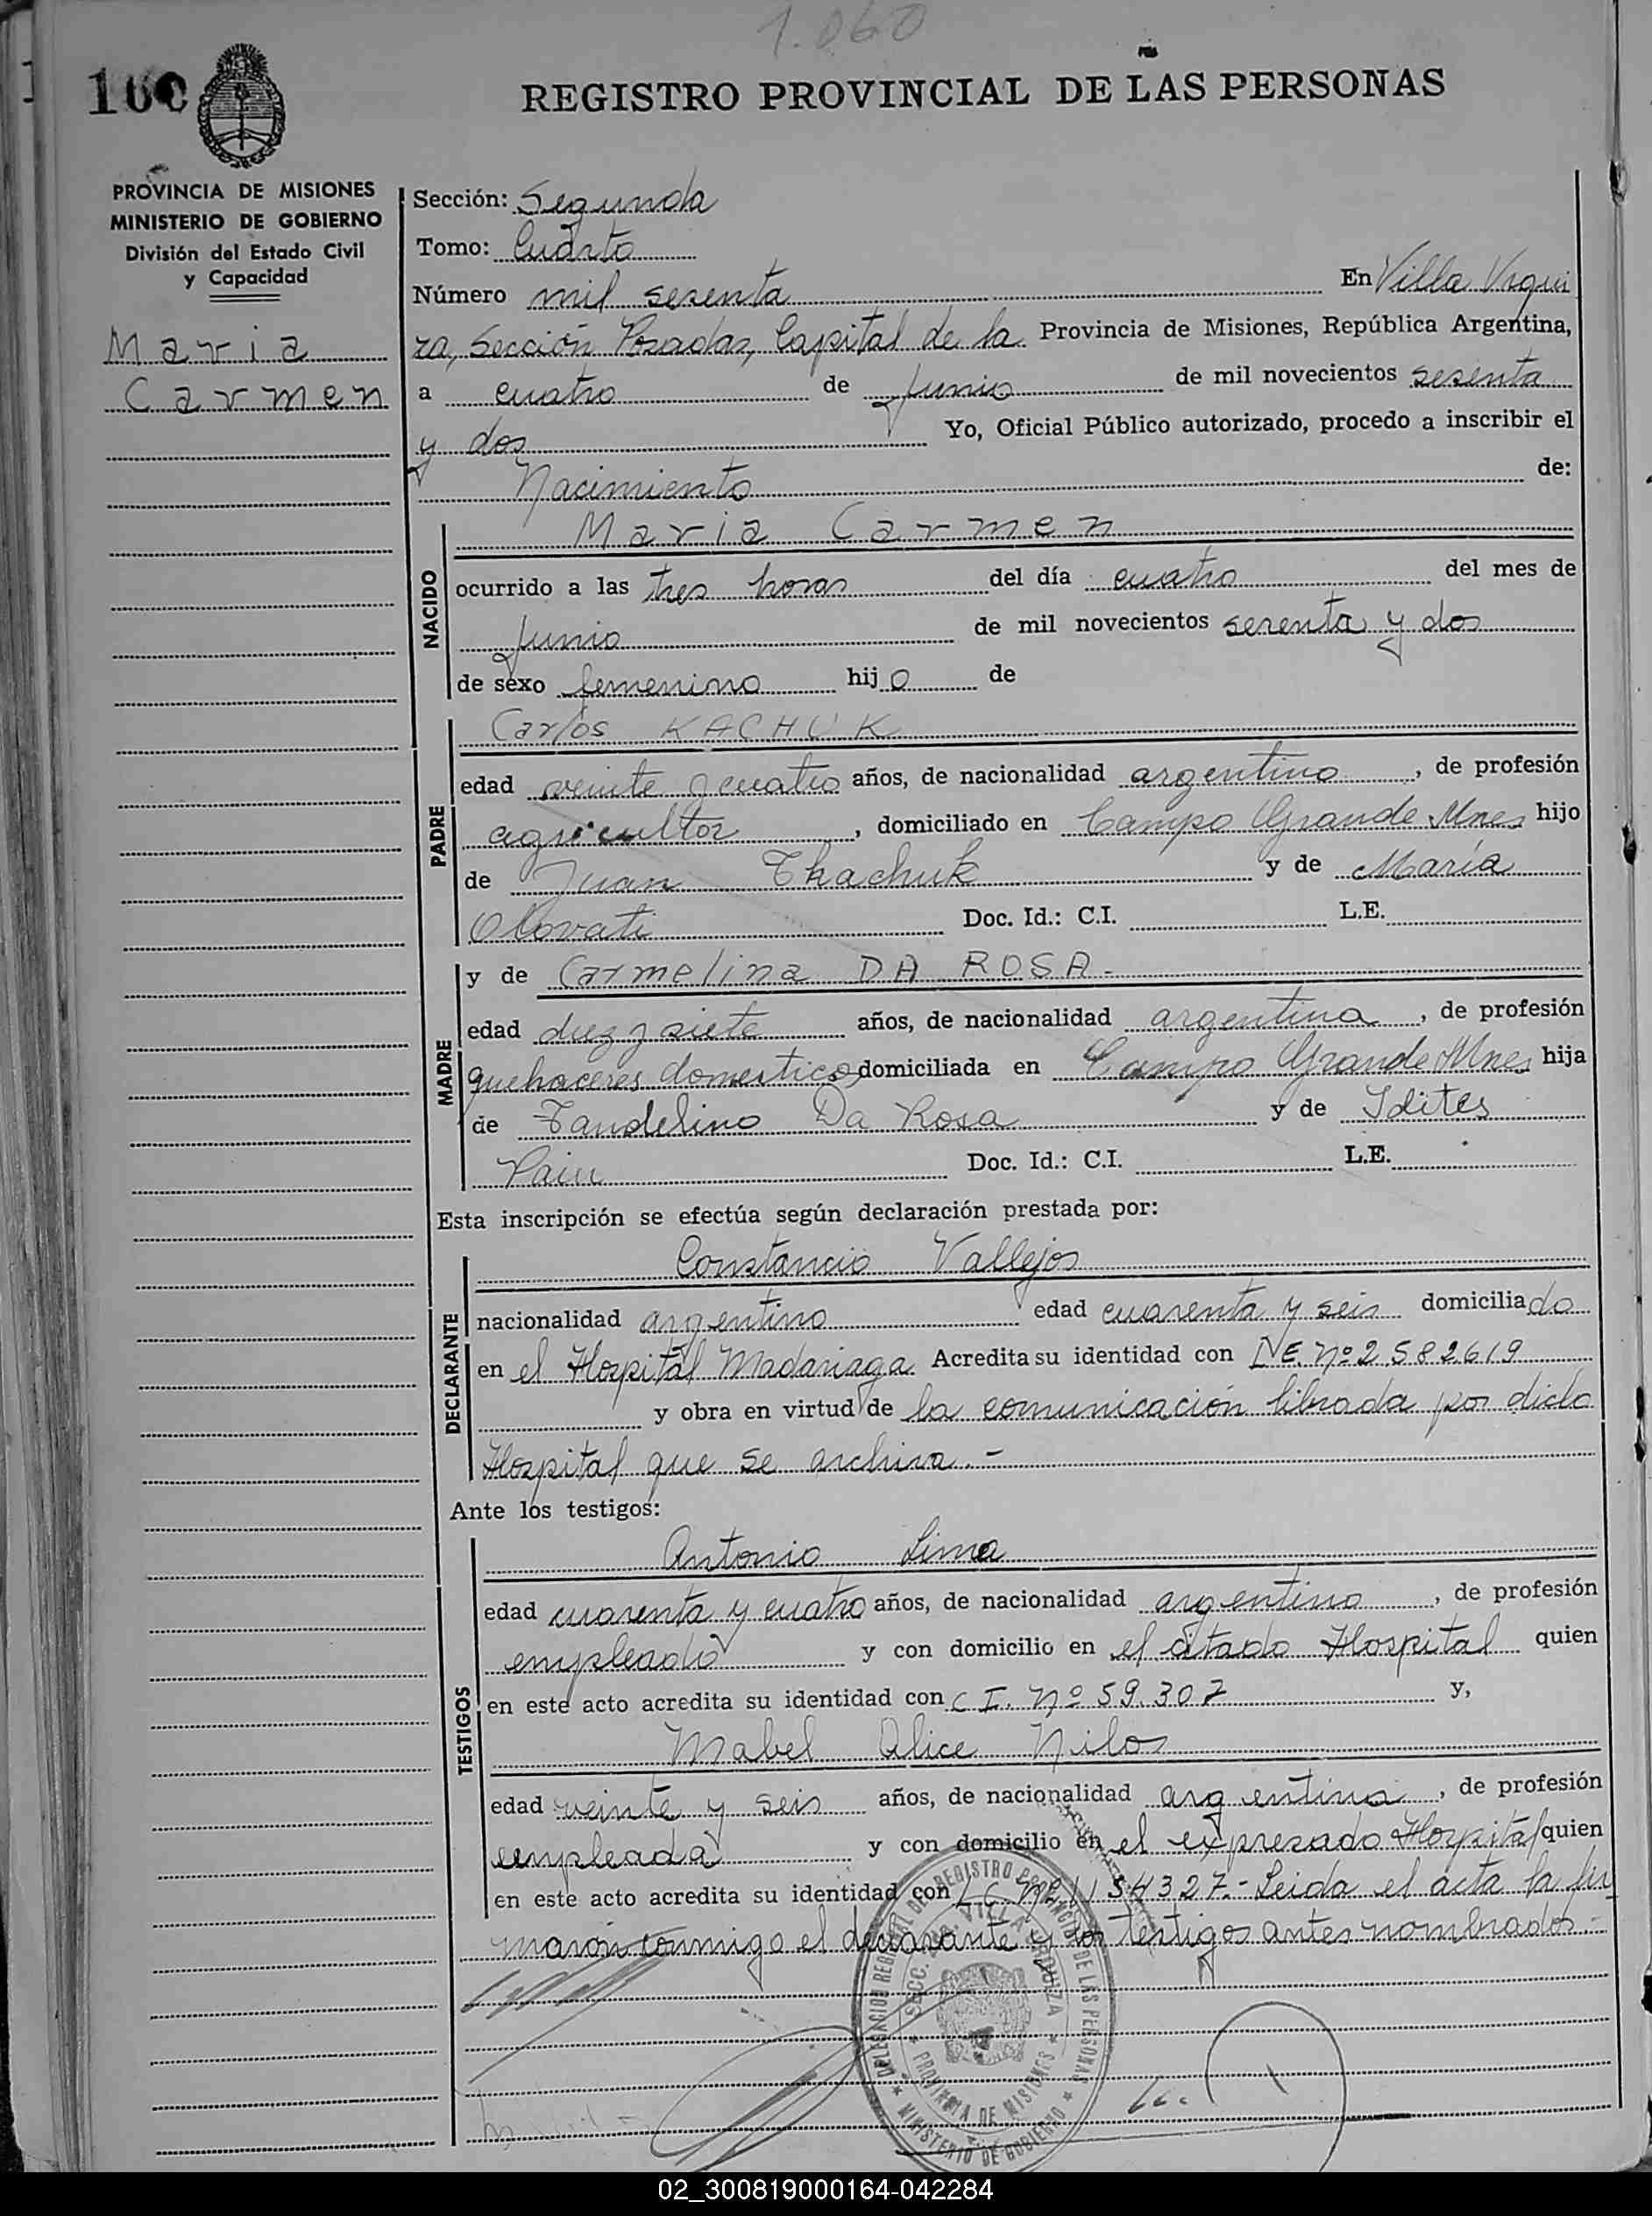 1.060
100
REGISTRO PROVINCIAL DE LAS PERSONAS
PROVINCIA DE MISIONES
MINISTERIO DE GOBIERNO
División del Estado Civil
y Capacidad
Maria
Carmen
Sección: Segunda
Tomo: Cuarto
Número mil sesenta En Villa Urqui
za, Sección Posadas, Capital de la Provincia de Misiones, República Argentina,
a cuatro de Junio de mil novecientos sesenta
y dos Yo, Oficial Público autorizado, procedo a inscribir el
Nacimiento de:
NACIDO
Maria Carmen
ocurrido a las tres horas del día cuatro del mes de
Junio de mil novecientos sesenta y dos
de sexo femenino hijo de
PADRE
Carlos KACHUK
edad veinte y cuatro años, de nacionalidad argentino, de profesión
agricultor, domiciliado en Campo Grande Mnes hijo
de Juan Tkachuk y de María
Olovati Doc. Id.: C.I. L.E.
MADRE
y de Carmelina DA ROSA.-
edad diez y siete años, de nacionalidad argentina, de profesión
quehaceres domesticos domiciliada en Campo Grande Mnes hija
de Tandelino Da Rosa y de Idites
Pain Doc. Id.: C.I. L.E.
Esta inscripción se efectúa según declaración prestada por:
DECLARANTE
Constancio Vallejos
nacionalidad argentino edad cuarenta y seis domiciliado
en el Hospital Madariaga. Acredita su identidad con Nº 2.582.619
y obra en virtud de la comunicación librada por dicho
Hospital que se archiva.-
Ante los testigos:
TESTIGOS
Antonio Lima
edad cuarenta y cuatro años, de nacionalidad argentino, de profesión
empleado y con domicilio en el citado Hospital quien
en este acto acredita su identidad con C I. Nº 59.307 y,
Mabel Alice Nilos
edad veinte y seis años, de nacionalidad argentina, de profesión
empleada y con domicilio en el expresado Hospital quien
en este acto acredita su identidad con L.C. 327.- Leida el acta la fir
maron conmigo el declarante y los testigos antes nombrados.-
DELEGACION REGIONAL DEL REGISTRO PROVINCIAL DE LAS PERSONAS
SECC. VILLA URQUIZA
PROVINCIA DE MISIONES
MINISTERIO DE GOBIERNO
02_300819000164-042284